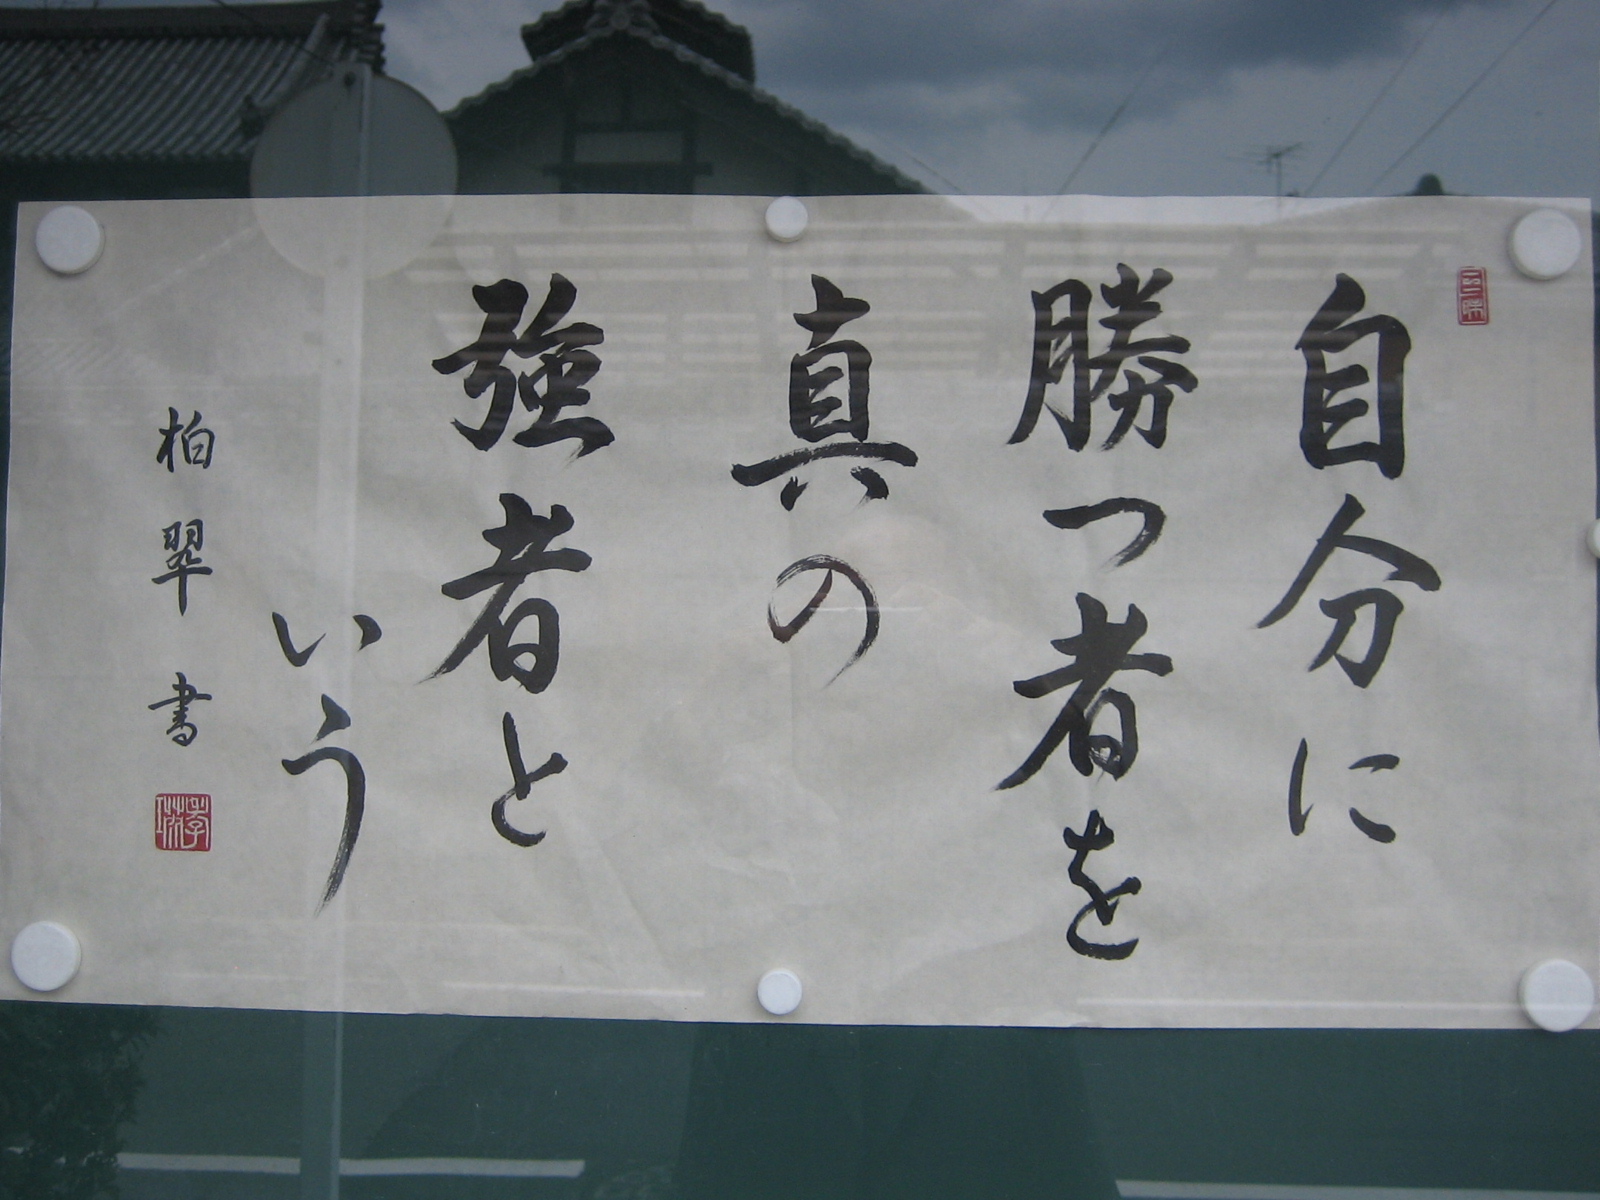 自分に
勝つ者を
真の
強者と
いう
柏翠書